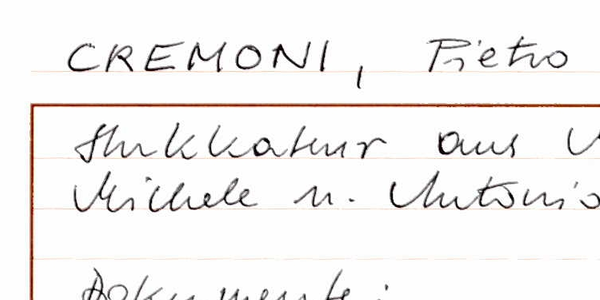 CREMONI, Pietro
Stukkateur aus
Michele u. Antonio
Dokumente: